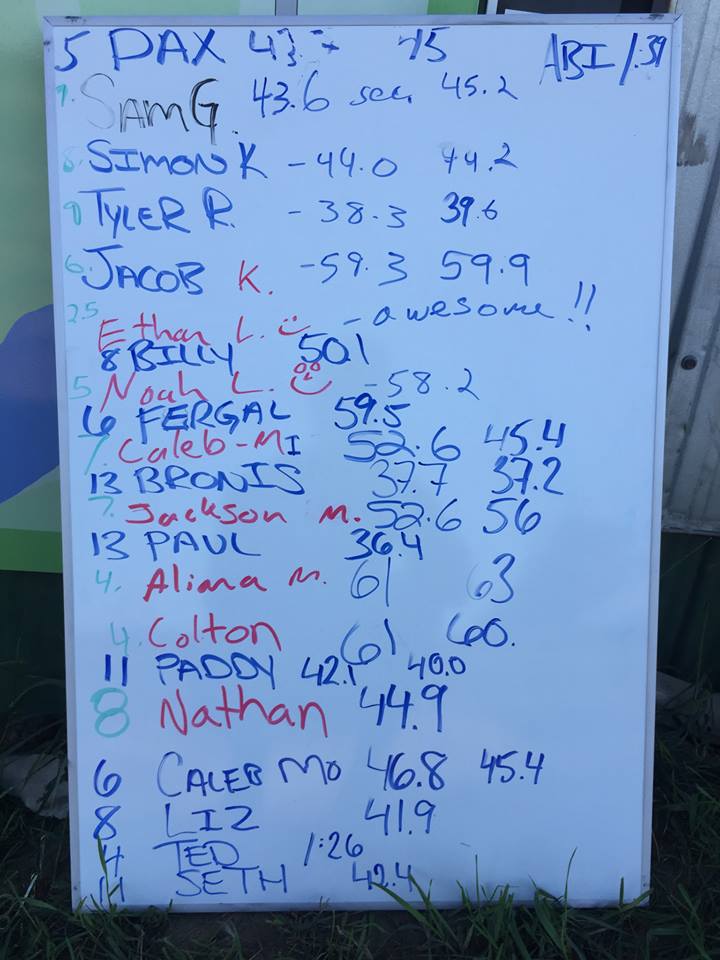 5 DAX 43. 45 ABI 1:39
7. SAM G. 43.6 sec 45.2
8. SIMON K - 44.0 44.2
9 TYLER R. - 38.3 39.6
6. JACOB K. - 59.3 59.9
2.5 Ethan L. - awesome!!
8 BILLY 50.1
5 Noah L. - 58.2
6 FERGAL 59.5
7. Caleb-MI 52.6 45.4
13 BRONIS 37.7 37.2
7. Jackson M. 52.6 56
13 PAUL 36.4
4. Aliana M. 61 63
4. Colton 61 60.
11 PADDY 42.1 40.0
8 Nathan 44.9
6 CALEB MO 46.8 45.4
8 LIZ 41.9
4 TED 1:26
11 SETH 42.4